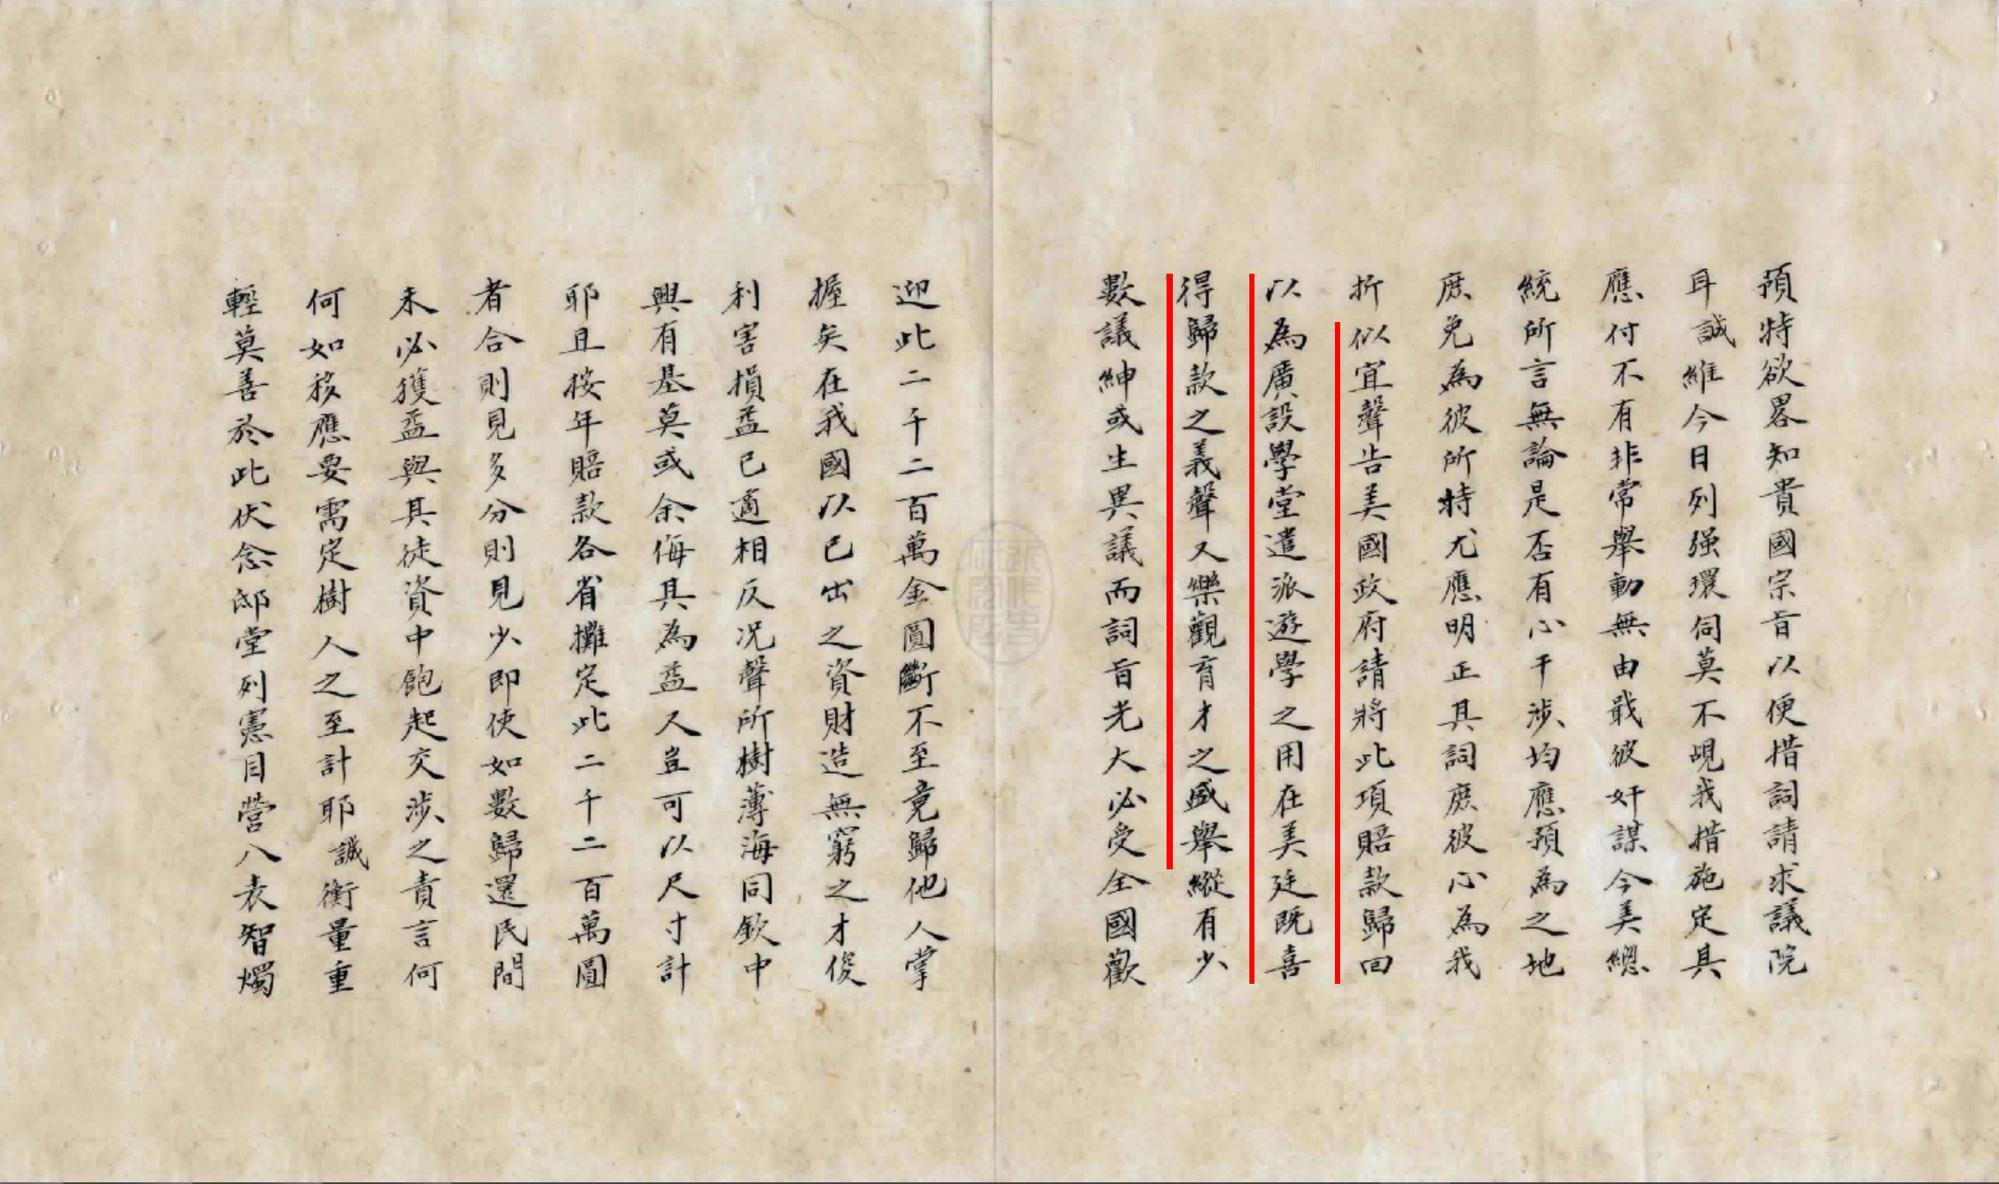 預特欲畧知貴國宗旨以便措詞請求議院
耳誠維今日列强環伺莫不覘我措施定具
應付不有非常舉動無由戢彼奸謀今美總
統所言無論是否有心干涉均應預為之地
庶免為彼所特尤應明正其詞庶彼心為我
折似宜聲告美國政府請將此項賠款歸回
以為廣設學堂遣派遊學之用在美廷既喜
得歸款之義聲又樂觀育才之盛舉縱有少
數議紳或生異議而詞旨光大必受全國歡
迎此二千二百萬金圓斷不至竟歸他人掌
握矣在我國以已出之資財造無窮之才俊
利害損益已適相反況聲所樹薄海同欽中
興有基莫或余侮其為益又豈可以尺寸計
耶且按年賠款各省攤定此二千二百萬圓
者合則見多分則見少即使如數歸還民間
未必獲益與其徒資中飽起交涉之責言何
何如移應要需定樹人之至計耶誠衡量重
輕莫善於此伏念邸堂列憲目營八表智燭